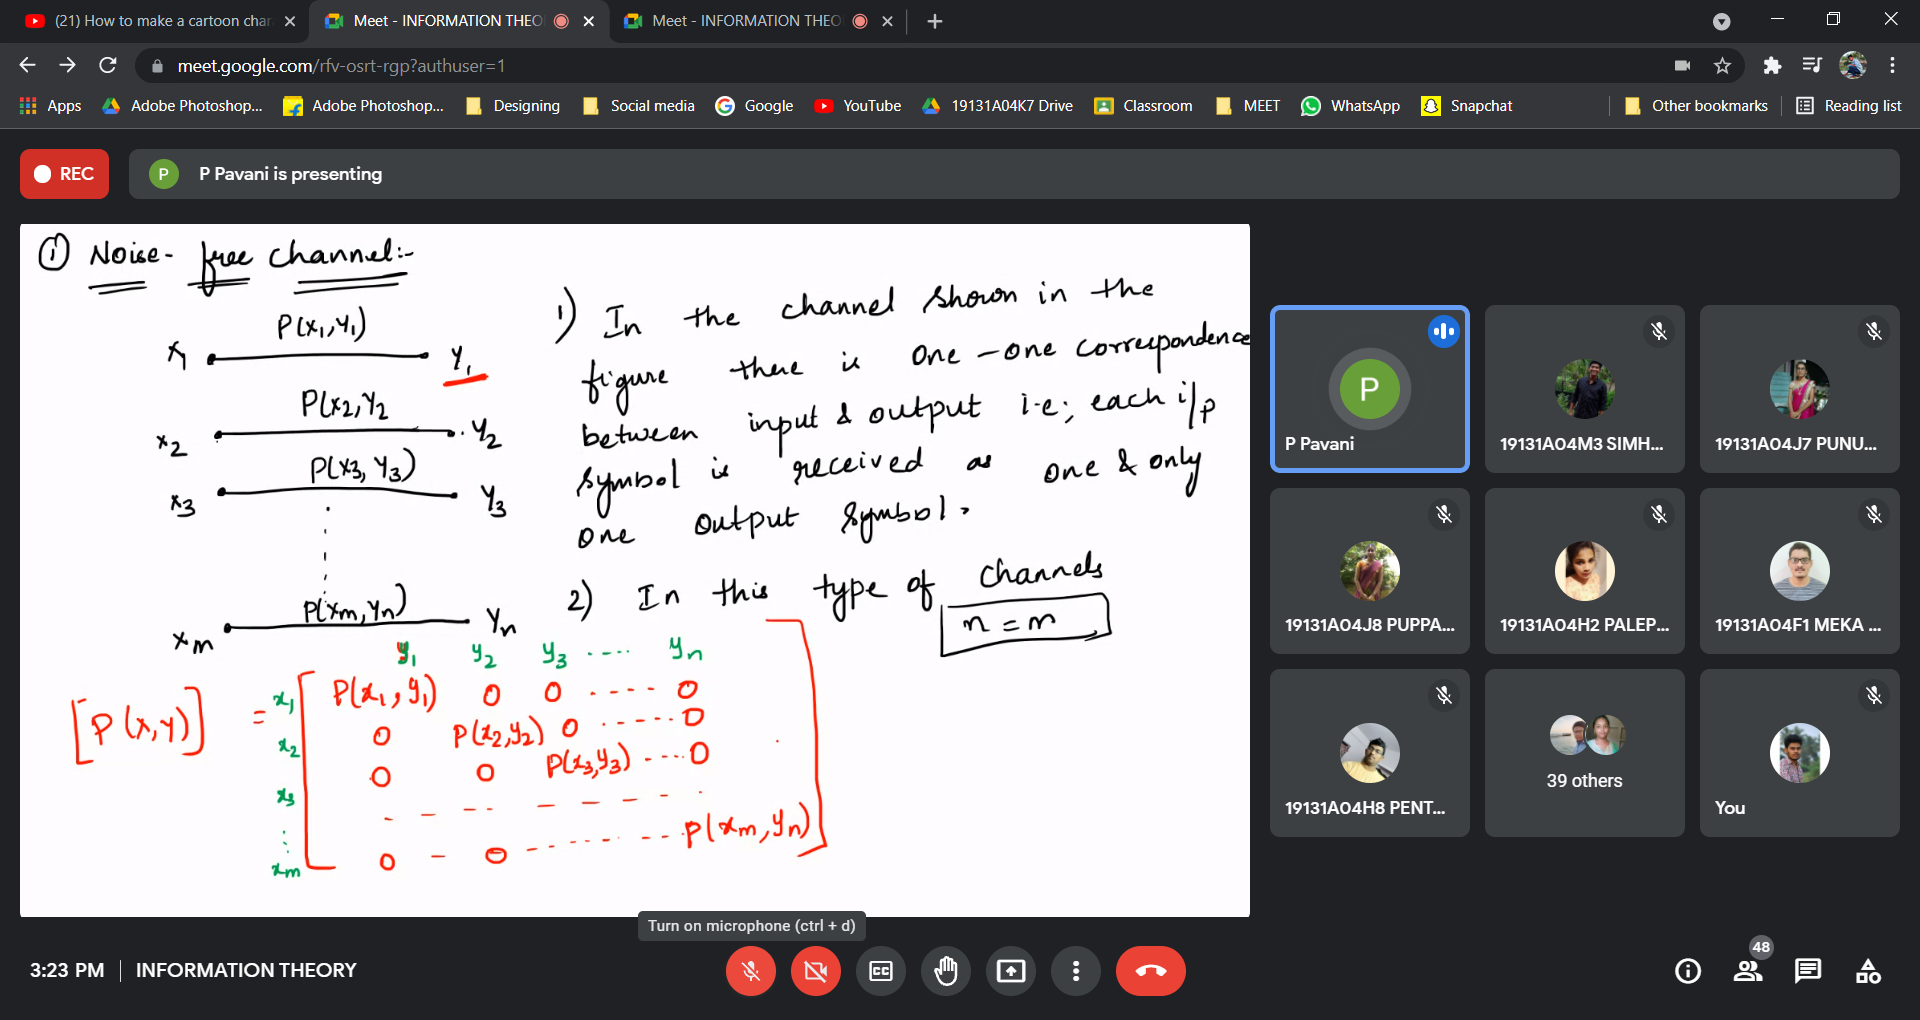 (21) How to make a cartoon char
Meet - INFORMATION THEO
Meet - INFORMATION THEO
meet.google.com/rfv-osrt-rgp?authuser=1
Apps
Adobe Photoshop...
Adobe Photoshop...
Designing
Social media
Google
YouTube
19131A04K7 Drive
Classroom
MEET
WhatsApp
Snapchat
Other bookmarks
Reading list
REC
P
P Pavani is presenting
① Noise-free channel:-
P(x₁,y₁)
x₁ y₁
P(x₂,y₂
x₂ y₂
P(x₃, y₃)
x₃ y₃
P(xₘ,yₙ)
xₘ yₙ
1) In the channel shown in the
figure there is one-one correspondence
between input & output i.e; each i/p
symbol is received as one & only
one output symbol.
2) In this type of channels
n = m
y₁ y₂ y₃ .... yₙ
[P(x,y)] = x₁ P(x₁,y₁) 0 0 .... 0
x₂ 0 P(x₂,y₂) 0 ...... 0
x₃ 0 0 P(x₃,y₃) .... 0
- - - - - - -
xₘ 0 - 0 ........ P(xₘ,yₙ)
P
P Pavani
19131A04M3 SIMH...
19131A04J7 PUNU...
19131A04J8 PUPPA...
19131A04H2 PALEP...
19131A04F1 MEKA ...
19131A04H8 PENT...
39 others
You
Turn on microphone (ctrl + d)
3:23 PM | INFORMATION THEORY
CC
48